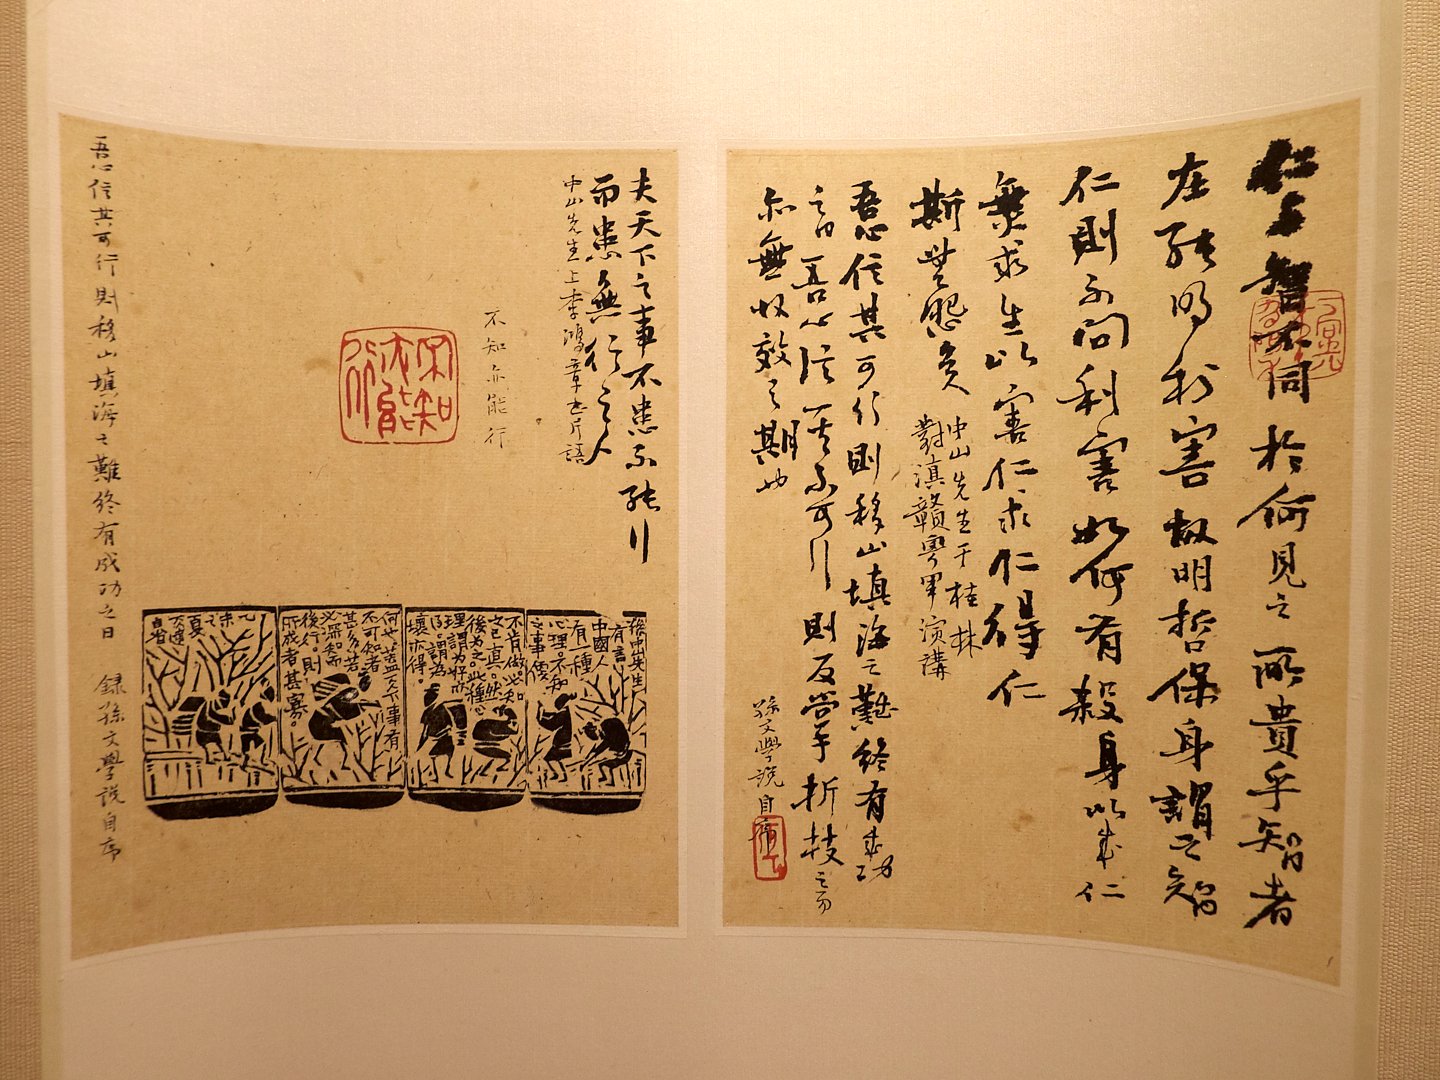 仁與智不同於何見之所貴乎智者
在能明利害故明哲保身謂之智
仁則不問利害如何有殺身以成仁
無求生以害仁求仁得仁
斯無怨矣
中山先生于桂林
對滇贛粵軍演講
吾心信其可行則移山填海之難終有成功
之日吾心信其不可行則反掌折枝之易
亦無收效之期也
孫文學說自序
夫天下之事不患不能行
而患無行之人
中山先生上李鴻章書片語
不知亦能行
不知亦能行
孫中山先生
有言
中國人
有一種
心理。不知
之事。便
不肯做。必知
之已真。然
後為之。此種心
理謂為好亦
可。謂為
壞亦得。
何也。蓋天下事有
不可知者
甚多。若
必深知而
後行。則
所成者甚寡。
吾心信其可行則移山填海之難終有成功之日 錄孫文學說自序